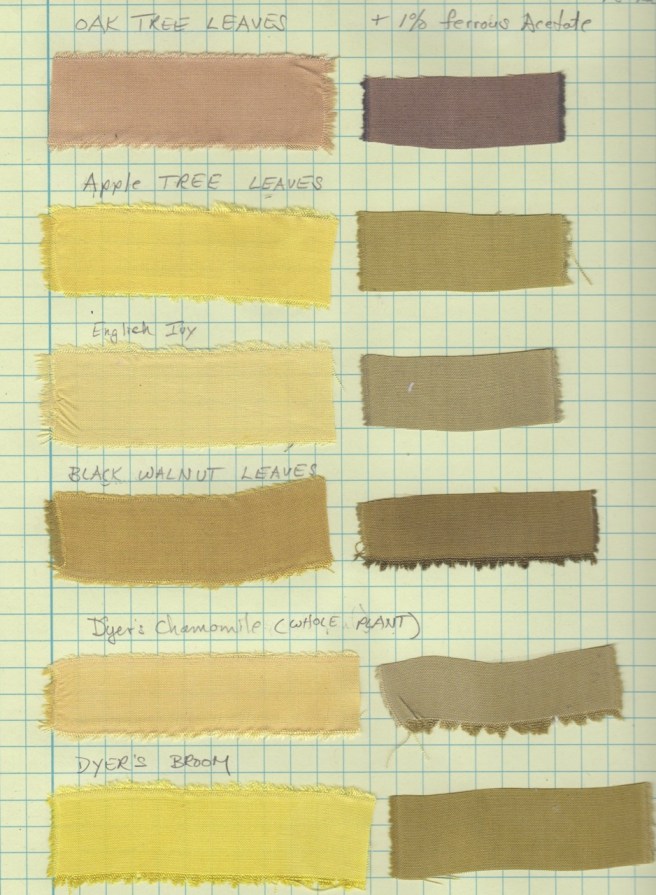 OAK TREE LEAVES + 1% ferrous Acetate
Apple TREE LEAVES
English Ivy
BLACK WALNUT LEAVES
Dyer's Chamomile (WHOLE PLANT)
DYER'S BROOM